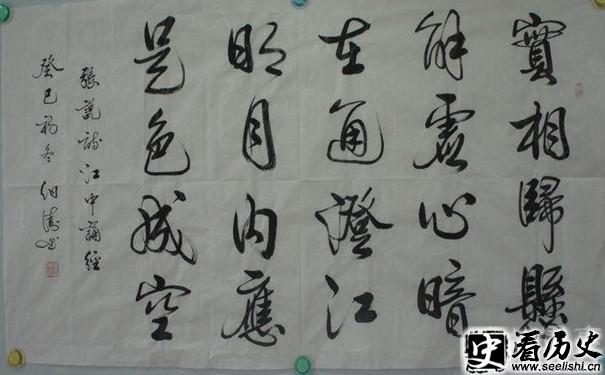 實相歸懸
解虛心暗
在通澄江
明月内應
是色成空
張説詩江中誦經
癸巳初冬
史 看历史
www.seelishi.cn